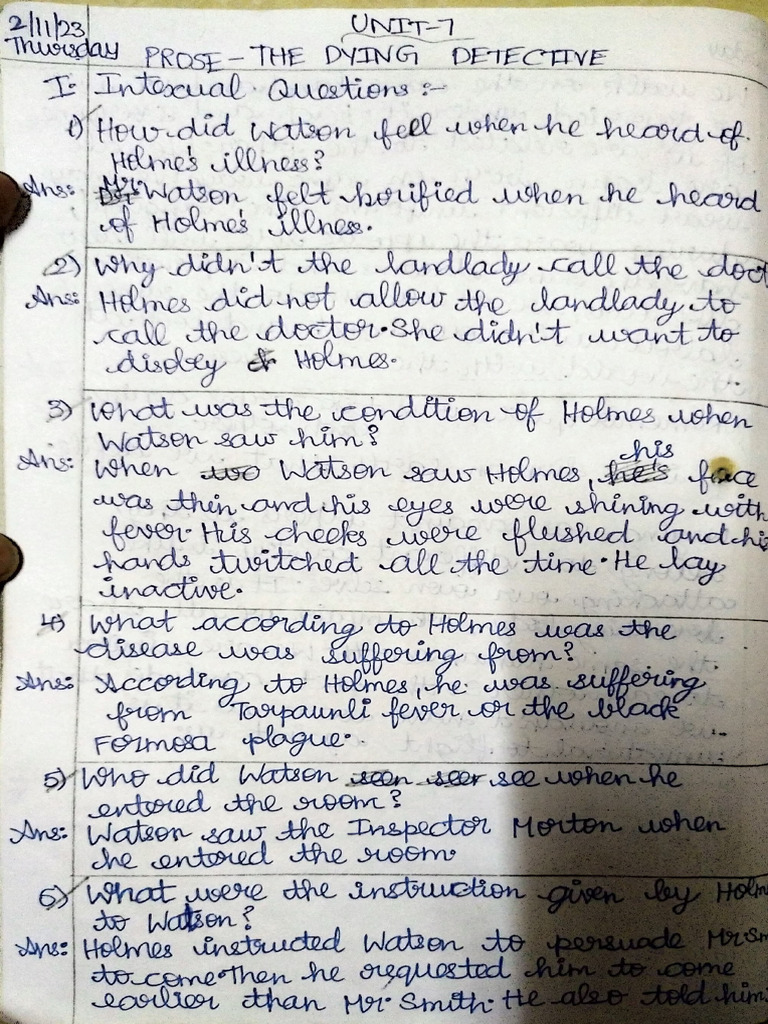 2/11/23
Thursday
UNIT-7
PROSE-THE DYING DETECTIVE
I. Intexual Questions :-
1) How did Watson fell when he heard of
Holme's illness?
Ans: Mr. Watson felt horified when he heard
of Holme's illness.
2) Why didn't the landlady call the doct
Ans: Holmes did not allow the landlady to
call the doctor. She didn't want to
disobey Holmes.
3) What was the condition of Holmes when
Watson saw him?
Ans: When Watson saw Holmes, his face
was thin and his eyes were shining with
fever. His cheeks were flushed and his
hands twitched all the time. He lay
inactive.
4) What according to Holmes was the
disease was suffering from?
Ans: According to Holmes, he was suffering
from Tarpaunli fever or the black
Formosa plague.
5) Who did Watson see when he
entered the room?
Ans: Watson saw the Inspector Morton when
he entered the room
6) What were the instruction given by Holm
to Watson?
Ans: Holmes instructed Watson to persuade Mr Sm
to come. Then he requested him to come
earlier than Mr. Smith. He also told him